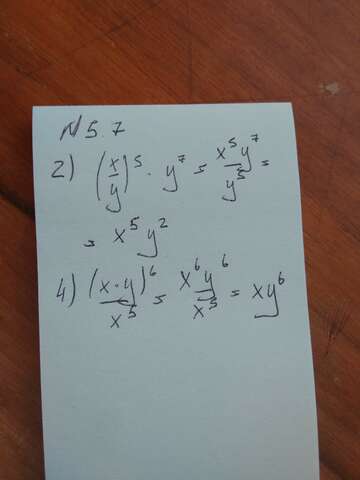 N 5.7
2) (x/y)⁵ · y⁷ = x⁵y⁷/y⁵ =
= x⁵y²
4) (x·y)⁶/x⁵ = x⁶y⁶/x⁵ = xy⁶